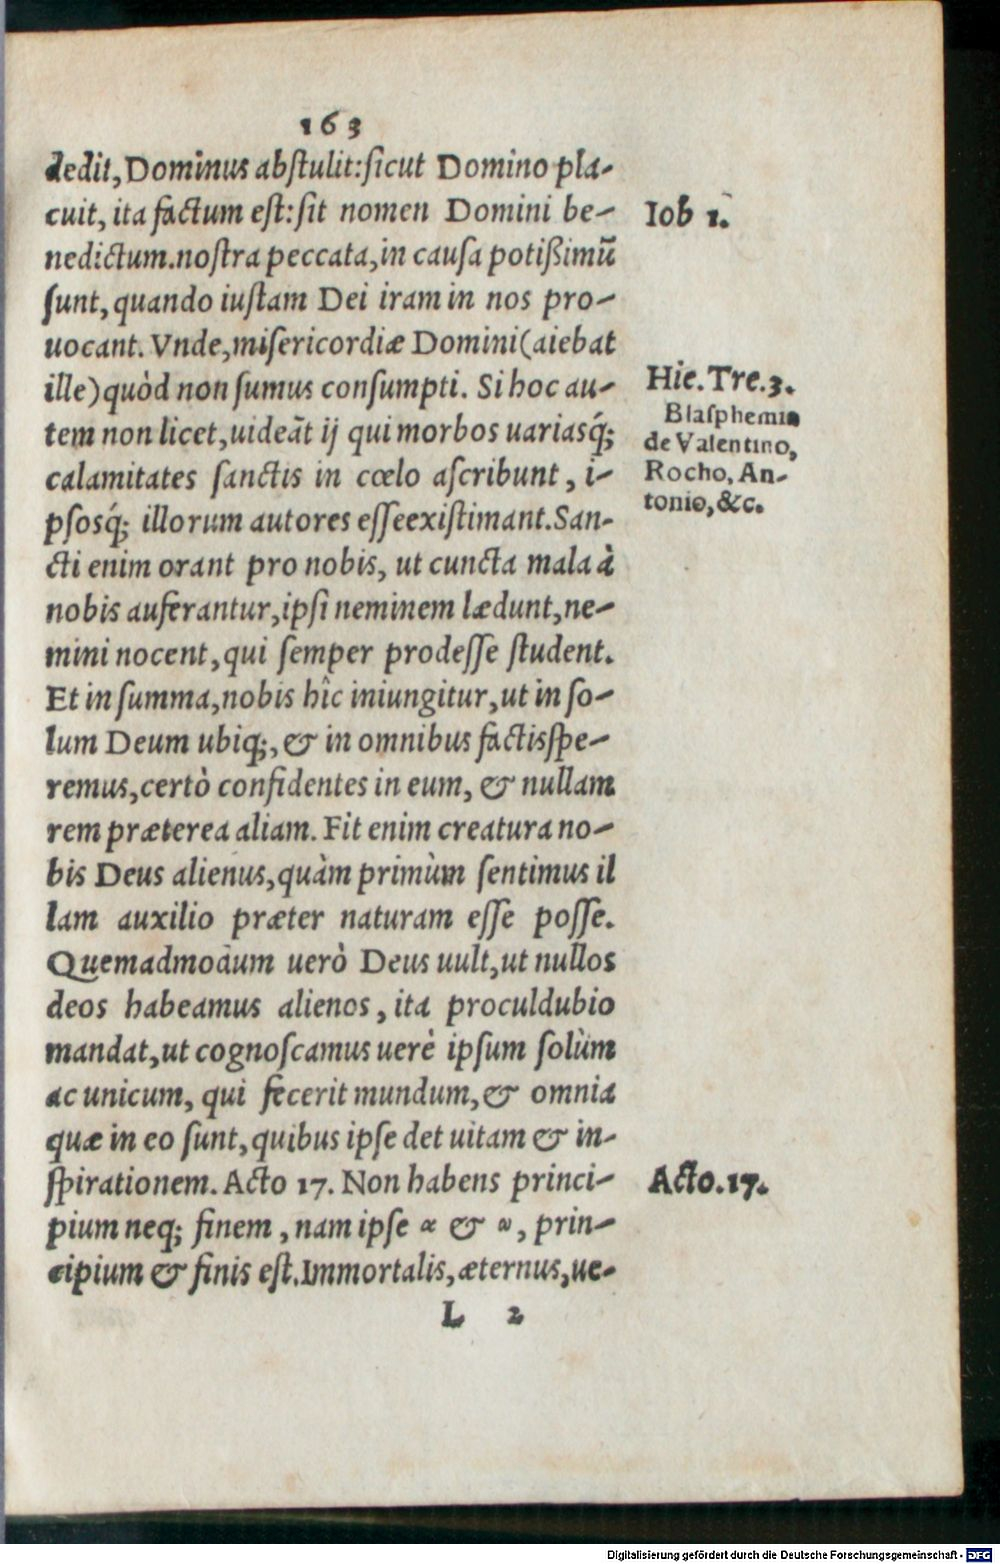 163
dedit, Dominus abstulit: sicut Domino pla-
cuit, ita factum est: sit nomen Domini be-
Iob 1.
nedictum. nostra peccata, in causa potißimũ
sunt, quando iustam Dei iram in nos pro-
uocant. Vnde, misericordiæ Domini (aiebat
ille) quòd non sumus consumpti. Si hoc au-
Hie. Tre. 3.
Blasphemia
de Valentino,
Rocho, An-
tonio, &c.
tem non licet, uideãt ij qui morbos uariasq́;
calamitates sanctis in cœlo ascribunt, i-
psosq́; illorum autores esse existimant. San-
cti enim orant pro nobis, ut cuncta mala à
nobis auferantur, ipsi neminem lædunt, ne-
mini nocent, qui semper prodesse student.
Et in summa, nobis hîc iniungitur, ut in so-
lum Deum ubiq;, & in omnibus factis spe-
remus, certò confidentes in eum, & nullam
rem præterea aliam. Fit enim creatura no-
bis Deus alienus, quàm primùm sentimus il
lam auxilio præter naturam esse posse.
Quemadmodum uerò Deus uult, ut nullos
deos habeamus alienos, ita proculdubio
mandat, ut cognoscamus uerè ipsum solùm
ac unicum, qui fecerit mundum, & omnia
quæ in eo sunt, quibus ipse det uitam & in-
spirationem. Acto 17. Non habens princi-
Acto. 17.
pium neq; finem, nam ipse α & ω, prin-
cipium & finis est. Immortalis, æternus, ue-
L 2
Digitalisierung gefördert durch die Deutsche Forschungsgemeinschaft - DFG